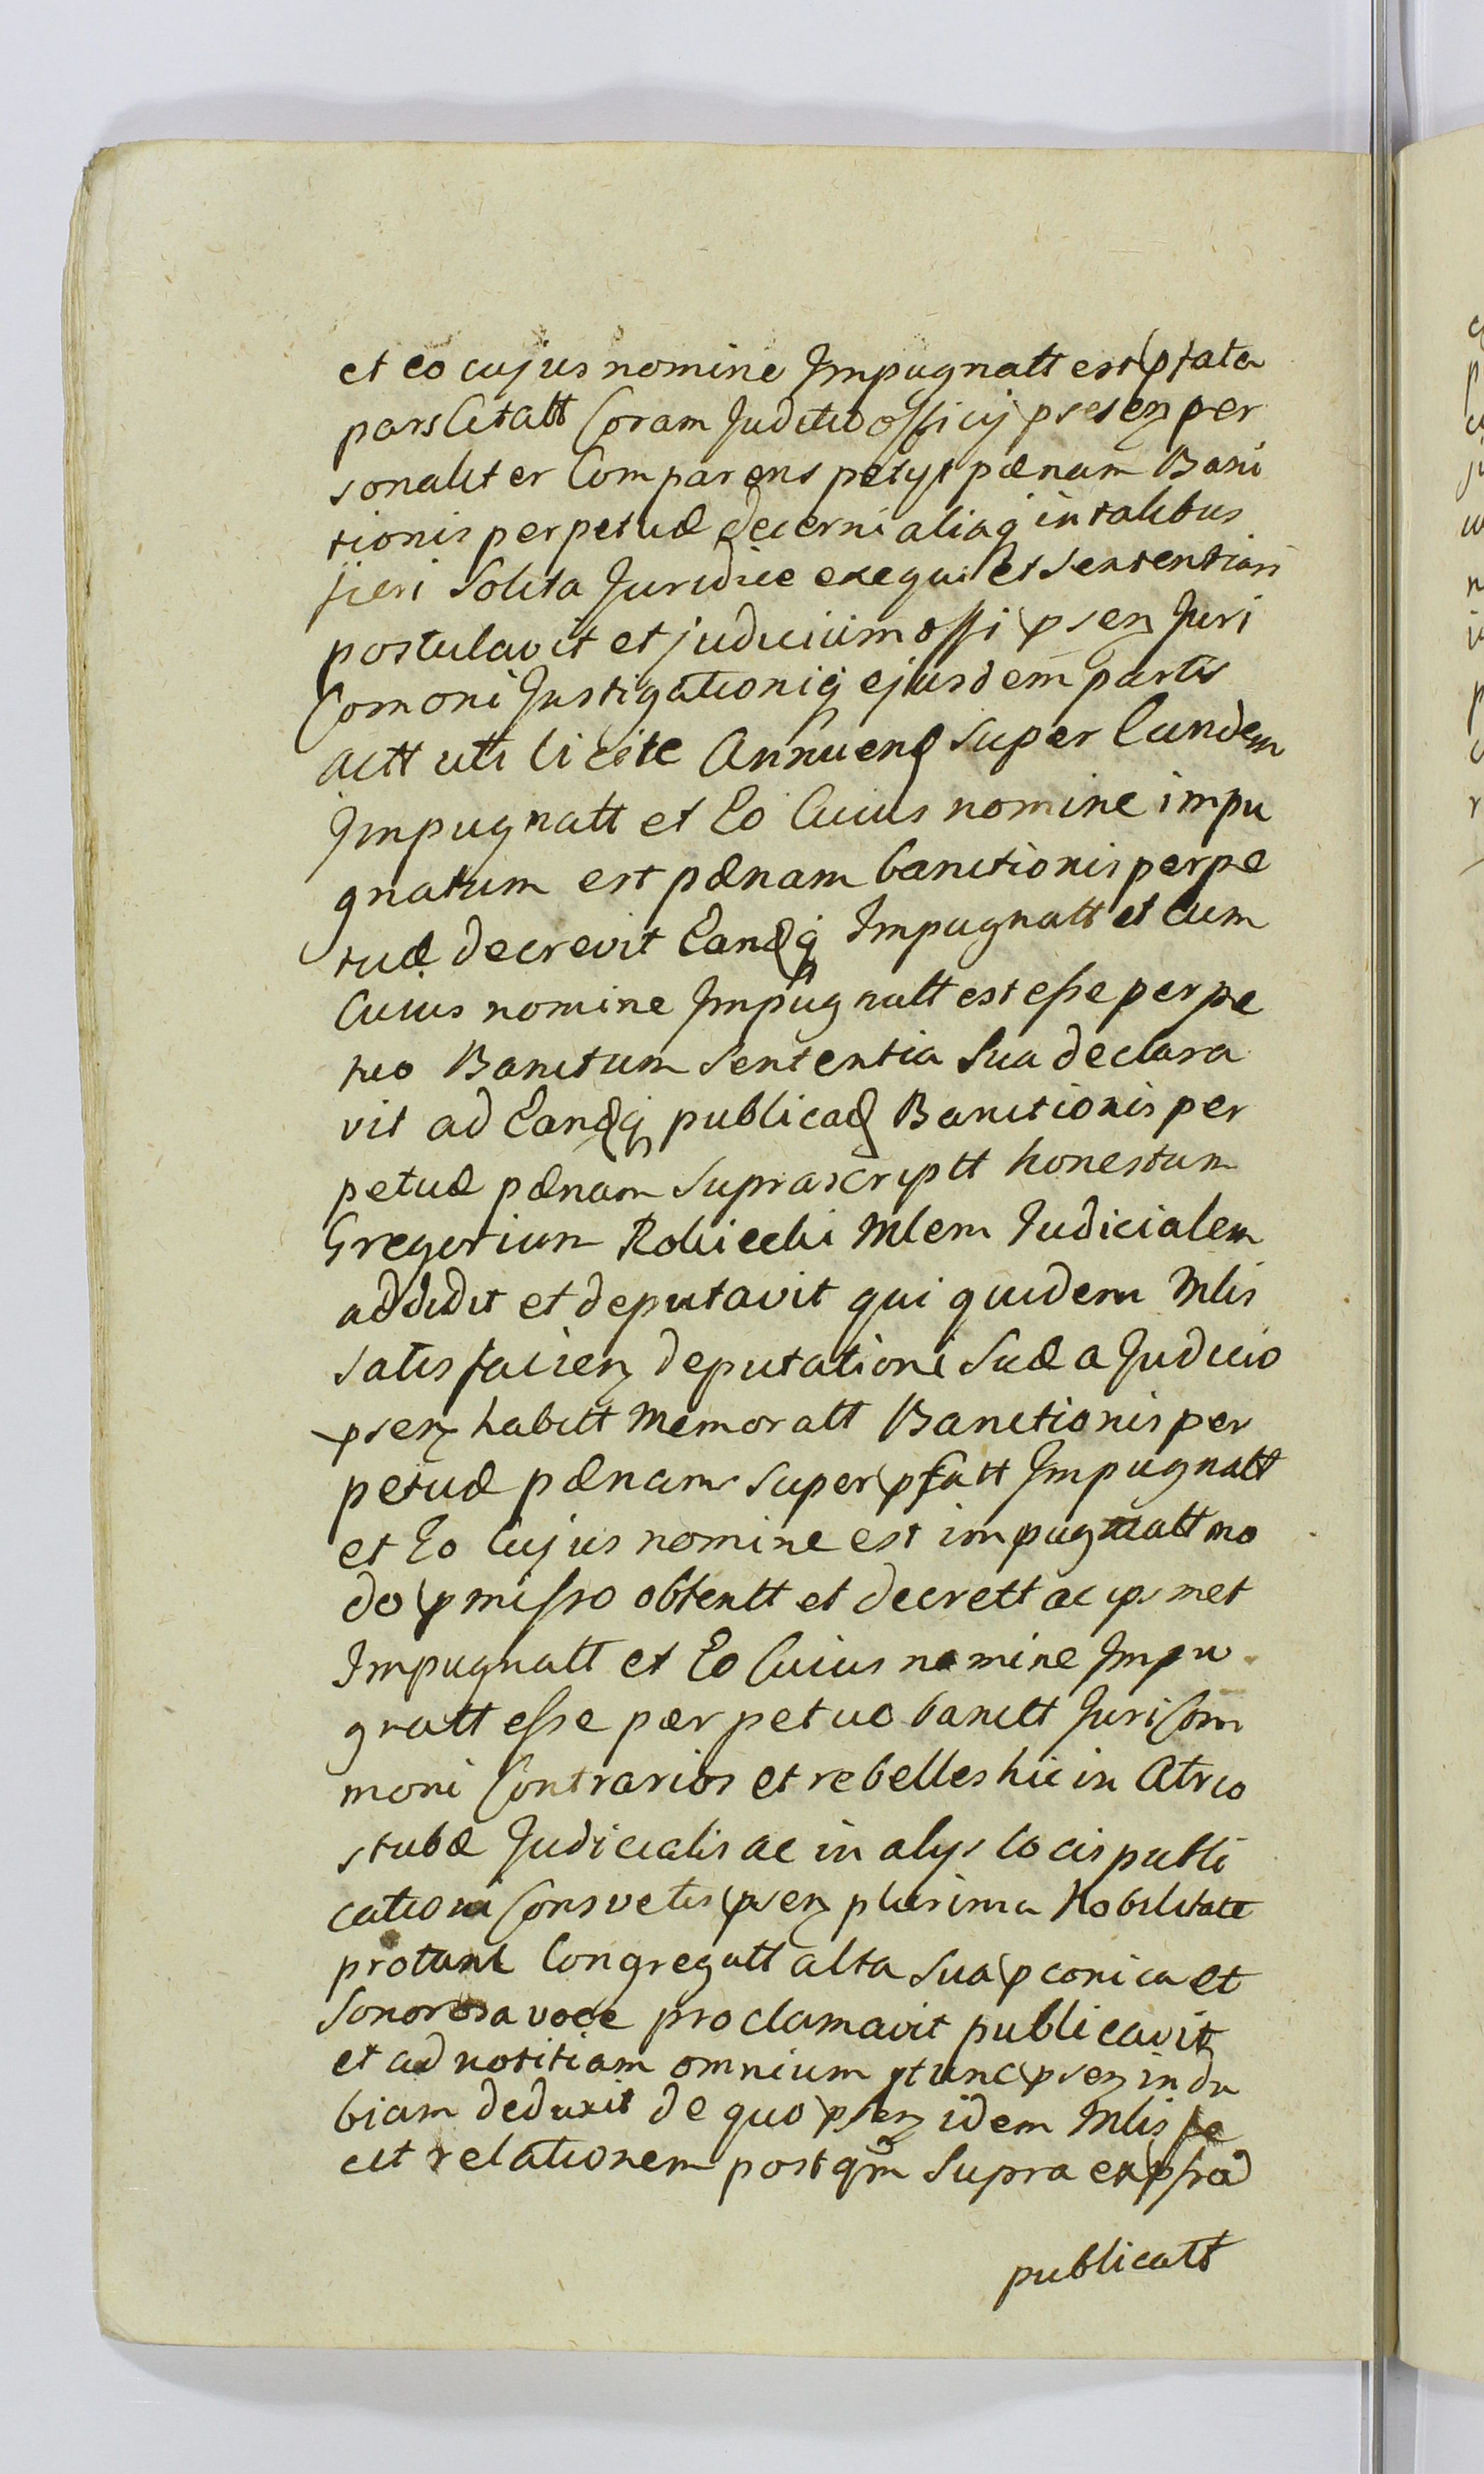 et eo cujus nomine Impugnatt est pfata
pars Citatt Coram Juditio officij presenz per
sonaliter Comparens petyt pænam Bani
tionis perpetuæ decerni aliaq in talibus
fieri Solita Juridice exequi et sententiari
postulavit et judicium offi psenz Juri
Comoni Instigationiq ejusdem partis
actt uti licite Annuens super Eundem
Impugnatt et Eo Cuius nomine impu
gnatum est pænam banitionis perpe
tuæ decrevit Eandq Impugnatt et eum
Cuius nomine Impugnatt est esse perpe
tuo Banitum Sententia Sua declara
vit ad Eandq publicad Banitionis per
petuæ pænam Suprascriptt honestum
Gregorium Rolicchi Mlem Judicialem
addidit et deputavit qui quidem Mlis
satisfacienz deputationi Suæ a Judicio
psenz habitt memoratt Banitionis per
petuæ pænam super pfatt Impugnatt
et Eo Cujus nomine est impugnatt mo
do pmisso obtentt et decrett ac ips met
Impugnatt et Eo Cuius nomine Impu
gnatt esse perpetuo banitt Juri Com
moni Contrarios et rebelles hic in Atrio
stubæ Judicialis ac in alys locis publi
cationi Consvetis psenz plurima Nobilitate
protunc Congregatt alta sua pconica et
Sonorosa voce proclamavit publicavit
et ad notitiam omnium ptunc psenz indu
biam deduxit de quo psenz idem Mlis fe
cit relationem post qm Supra expssa
publicatt